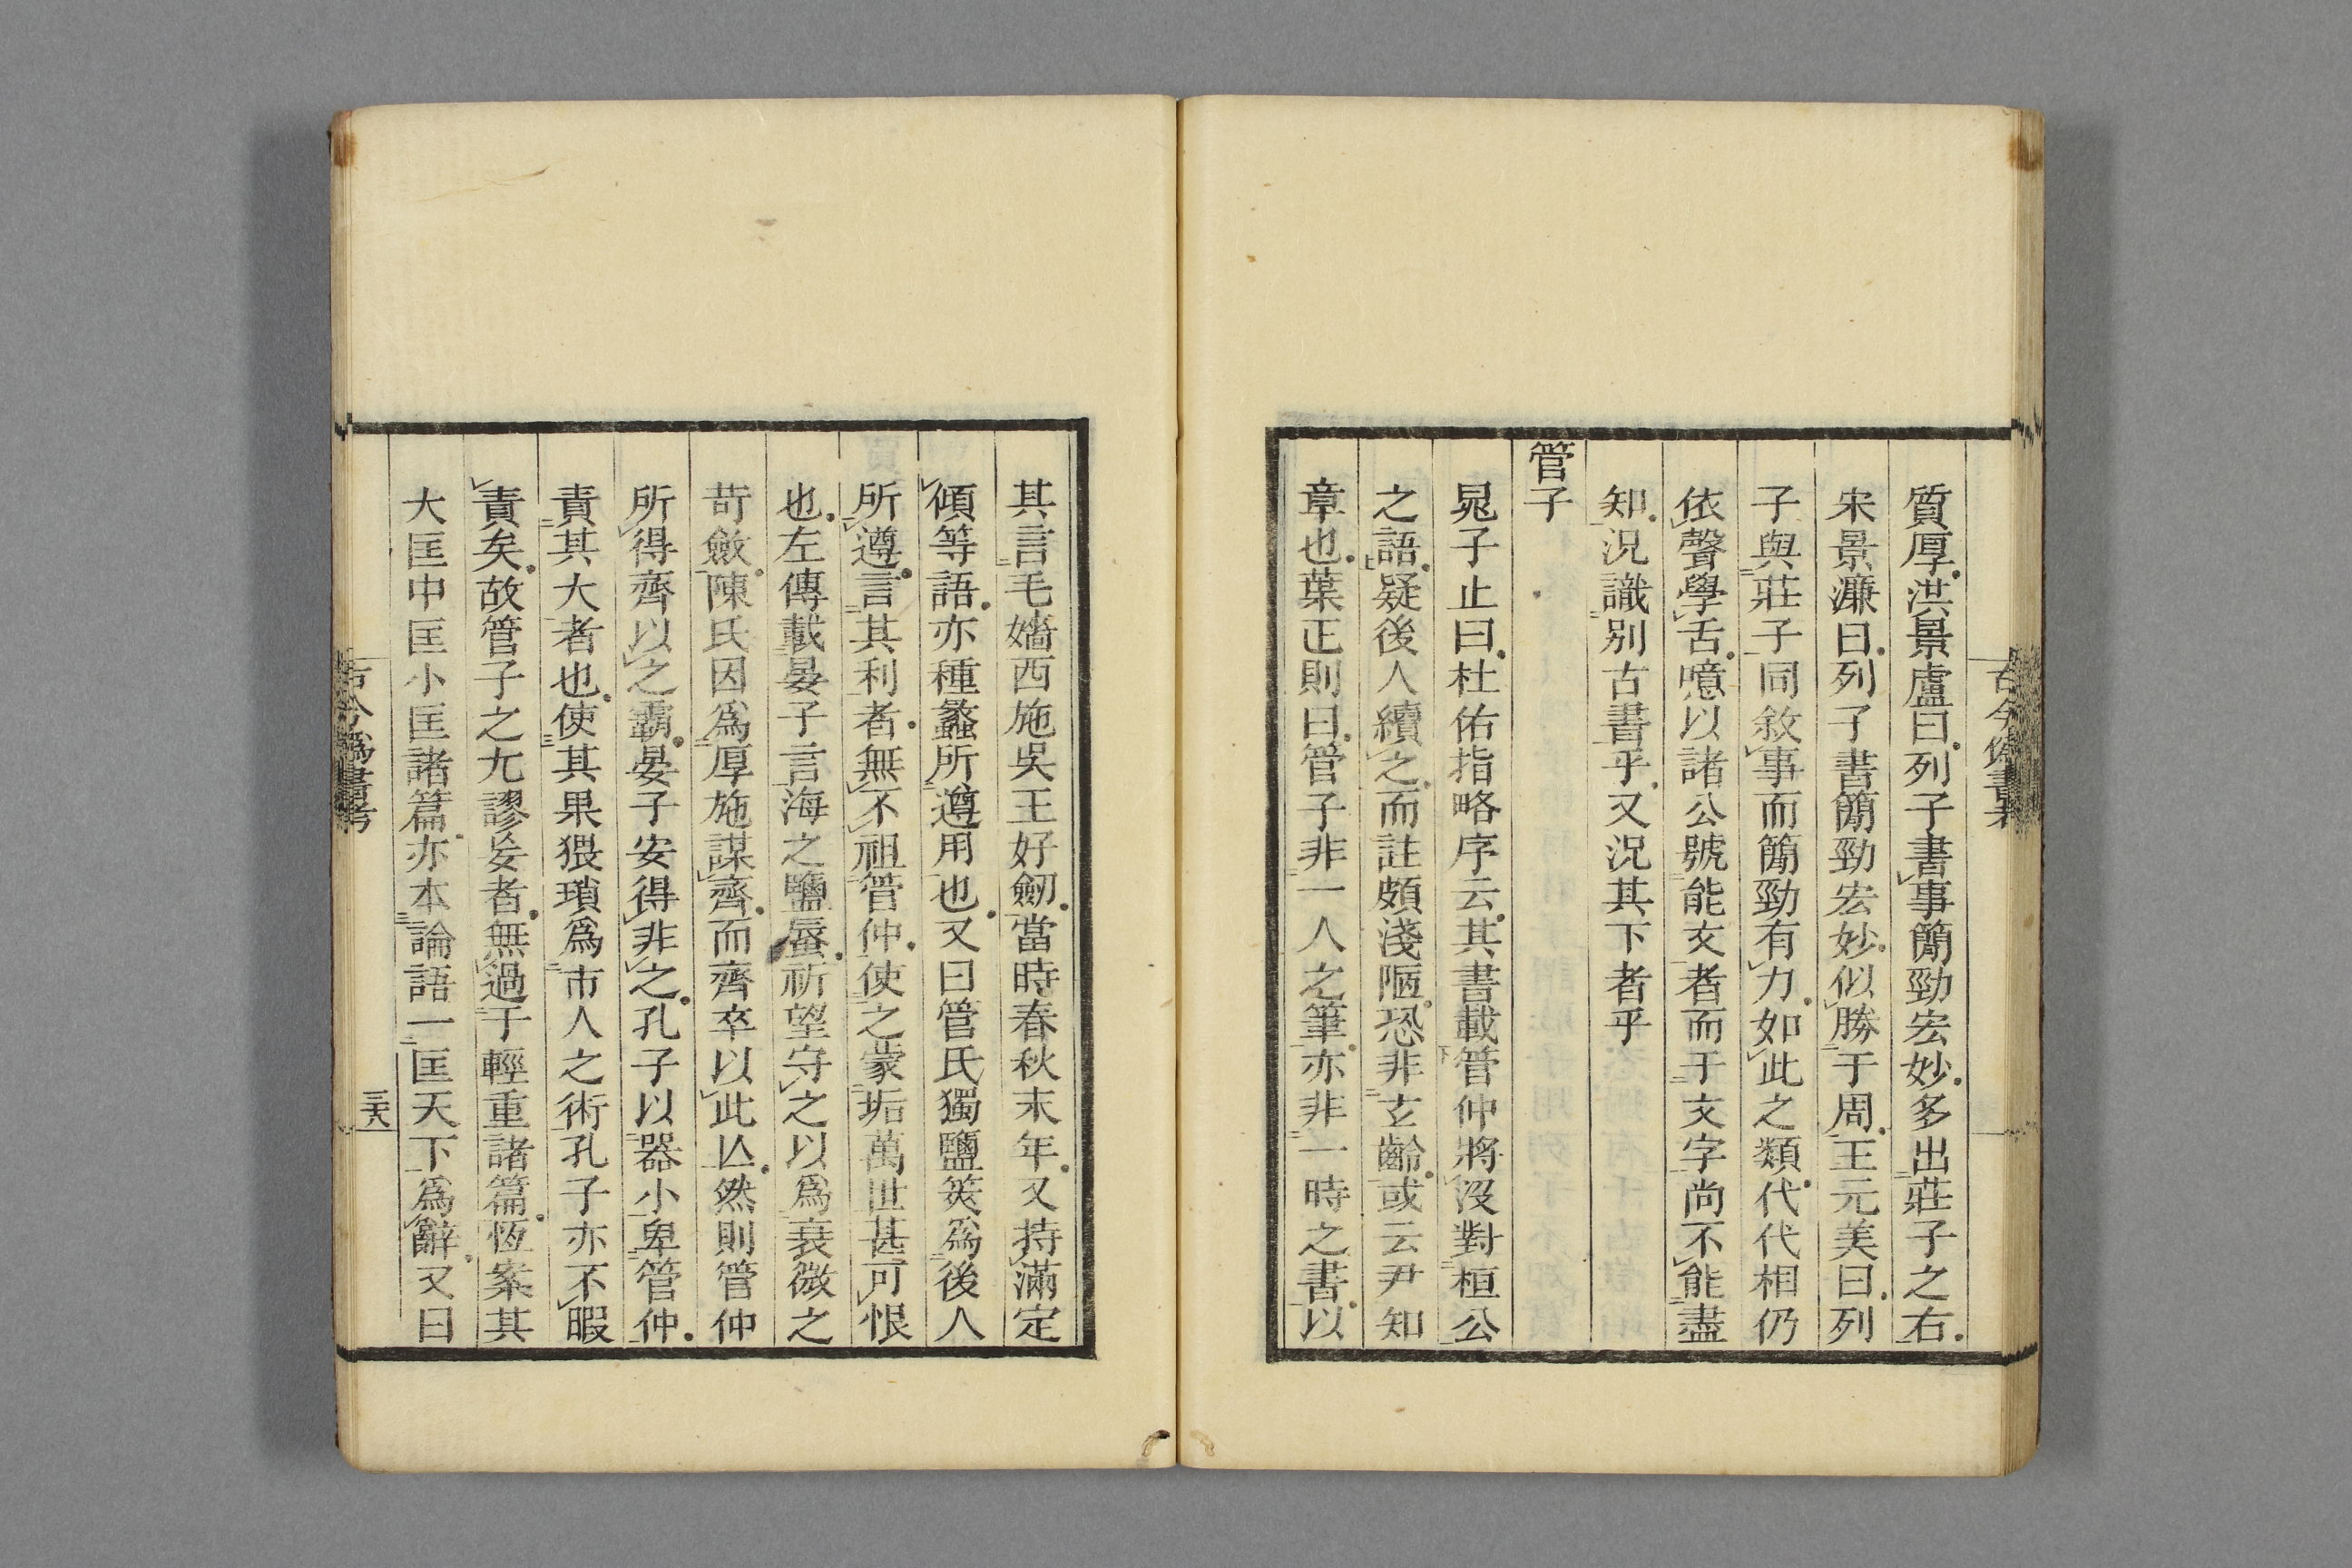 質厚洪景盧曰列子書事簡勁宏妙多出莊子之右
宋景濂曰列子書簡勁宏妙似勝于周王元美曰列
子與莊子同敘事而簡勁有力如此之類代代相仍
依聲學舌噫以諸公號能文者而于文字尚不能盡
知況識別古書乎又況其下者乎
管子
晁子止曰杜佑指略序云其書載管仲將沒對桓公
之語疑後人續之而註頗淺陋恐非玄齡或云尹知
章也葉正則曰管子非一人之筆亦非一時之書以
其言毛嬙西施吳王好劒當時春秋末年又持滿定
傾等語亦種蠡所遵用也又曰管氏獨鹽筴為後人
所遵言其利者無不祖管仲使之蒙垢萬世甚可恨
也左傳載晏子言海之鹽蜃祈望守之以為衰微之
苛斂陳氏因為厚施謀齊而齊卒以此亾然則管仲
所得齊以之霸晏子安得非之孔子以器小卑管仲
責其大者也使其果猥瑣為市人之術孔子亦不暇
責矣故管子之尤謬妄者無過于輕重諸篇恆案其
大匡中匡小匡諸篇亦本論語一匡天下為辭又曰
古今僞書考
三六